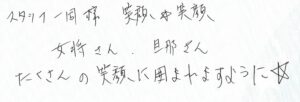 スタッフ一同様 笑顔☆笑顔
女将さん、旦那さん
たくさんの笑顔に囲まれますように☆